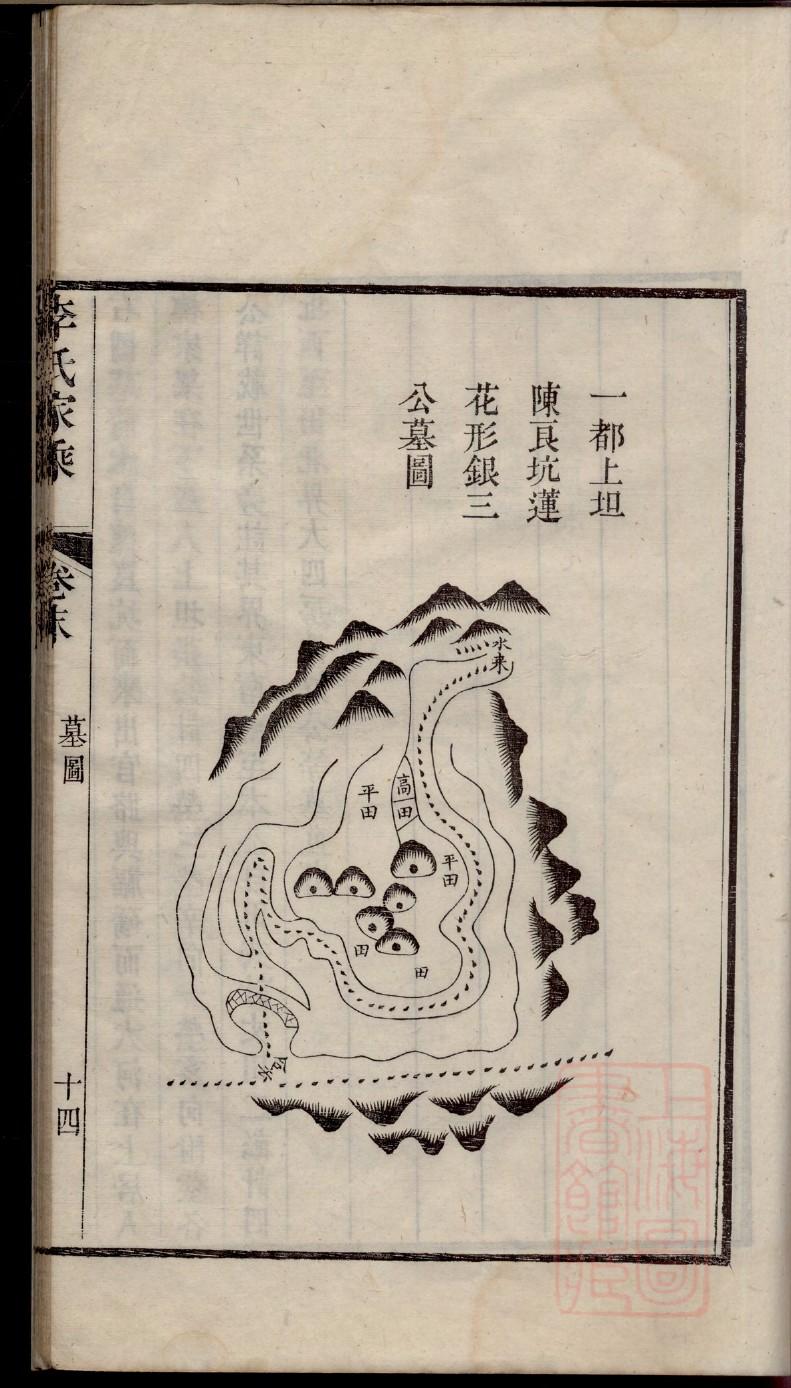 一都上坦
陳良坑蓮
花形銀三
公墓圖
水来
高田
平田
平田
田
田
合水
李氏家乘
卷末
墓圖
十四
上海圖
書館藏